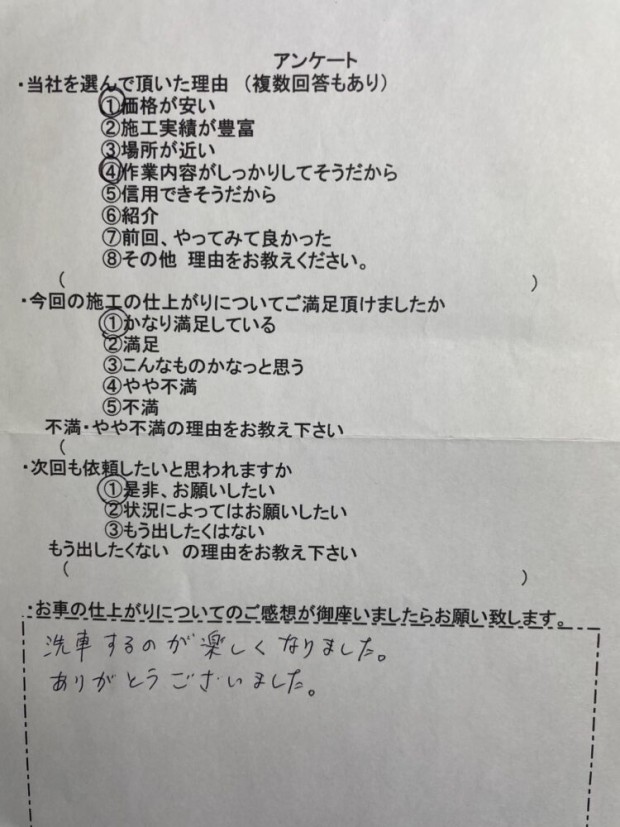 アンケート
・当社を選んで頂いた理由 (複数回答もあり)
①価格が安い
②施工実績が豊富
③場所が近い
④作業内容がしっかりしてそうだから
⑤信用できそうだから
⑥紹介
⑦前回、やってみて良かった
⑧その他 理由をお教えください。
( )
・今回の施工の仕上がりについてご満足頂けましたか
①かなり満足している
②満足
③こんなものかなっと思う
④やや不満
⑤不満
不満・やや不満の理由をお教え下さい
(
・次回も依頼したいと思われますか
①是非、お願いしたい
②状況によってはお願いしたい
③もう出したくはない
もう出したくない の理由をお教え下さい
( )
・お車の仕上がりについてのご感想が御座いましたらお願い致します。
洗車するのが楽しくなりました。
ありがとうございました。